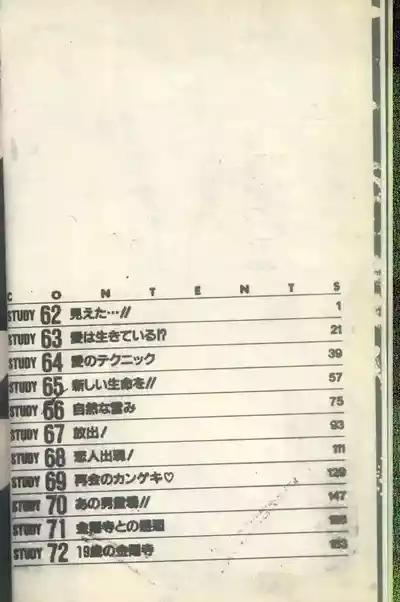 CONTENTS
STUDY 62 見えた…!! 1
STUDY 63 愛は生きている!? 21
STUDY 64 愛のテクニック 39
STUDY 65 新しい生命を!! 57
STUDY 66 自然な営み 75
STUDY 67 放出! 93
STUDY 68 恋人出現! 111
STUDY 69 再会のカンゲキ♡ 129
STUDY 70 あの男登場!! 147
STUDY 71 金隠寺との
STUDY 72 19歳の